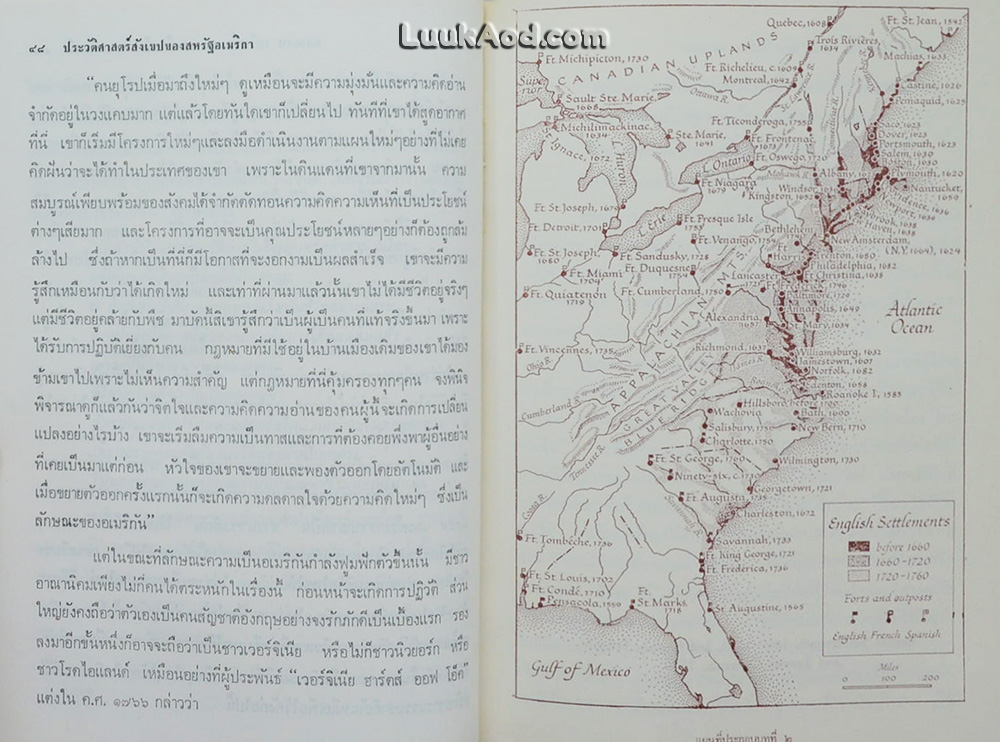 LuukAod.com
๔๘ ประวัติศาสตร์สังเขปของสหรัฐอเมริกา
"คนยุโรปเมื่อมาถึงใหม่ๆ ดูเหมือนจะมีความมุ่งมั่นและความคิดอ่าน
จำกัดอยู่ในวงแคบมาก แต่แล้วโดยทันใดเขาก็เปลี่ยนไป ทันทีที่เขาได้สูดอากาศ
ที่นี่ เขาก็เริ่มมีโครงการใหม่ๆและลงมือดำเนินงานตามแผนใหม่ๆอย่างที่ไม่เคย
คิดฝันว่าจะได้ทำในประเทศของเขา เพราะในดินแดนที่เขาจากมานั้น ความ
สมบูรณ์เพียบพร้อมของสังคมได้จำกัดตัดทอนความคิดความเห็นที่เป็นประโยชน์
ต่างๆเสียมาก และโครงการที่อาจจะเป็นคุณประโยชน์หลายๆอย่างก็ต้องถูกล้ม
ล้างไป ซึ่งถ้าหากมาเป็นที่นี่ก็มีโอกาสที่จะงอกงามเป็นผลสำเร็จ เขาจะมีความ
รู้สึกเหมือนกับว่าได้เกิดใหม่ และเท่าที่ผ่านมาแล้วนั้นเขาไม่ได้มีชีวิตอยู่จริงๆ
แต่มีชีวิตอยู่คล้ายกับพืช มาบัดนี้สิเขารู้สึกว่าเป็นผู้เป็นคนที่แท้จริงขึ้นมา เพราะ
ได้รับการปฏิบัติเยี่ยงกับคน กฎหมายที่มีใช้อยู่ในบ้านเมืองเดิมของเขาได้มอง
ข้ามเขาไปเพราะไม่เห็นความสำคัญ แต่กฎหมายที่นี่คุ้มครองทุกๆคน จงพินิจ
พิจารณาดูก็แล้วกันว่าจิตใจและความคิดความอ่านของคนผู้นี้จะเกิดการเปลี่ยน
แปลงอย่างไรบ้าง เขาจะเริ่มลืมความเป็นทาสและการที่ต้องคอยพึ่งพาผู้อื่นอย่าง
ที่เคยเป็นมาแต่ก่อน หัวใจของเขาจะขยายและพองตัวออกโดยอัตโนมัติ และ
เมื่อขยายตัวออกครั้งแรกนั้นก็จะเกิดความดลดาลใจด้วยความคิดใหม่ๆ ซึ่งเป็น
ลักษณะของอเมริกัน"
แต่ในขณะที่ลักษณะความเป็นอเมริกันกำลังฟูมฟักตัวขึ้นนั้น มีชาว
อาณานิคมเพียงไม่กี่คนได้ตระหนักในเรื่องนี้ ก่อนหน้าจะเกิดการปฏิวัติ ส่วน
ใหญ่ยังคงถือว่าตัวเองเป็นคนสัญชาติอังกฤษอย่างจงรักภักดีเป็นเบื้องแรก รอง
ลงมาอีกขั้นหนึ่งก็อาจจะถือว่าเป็นชาวเวอร์จิเนีย หรือไม่ก็ชาวนิวยอร์ก หรือ
ชาวโรดไอแลนด์ เหมือนอย่างที่ผู้ประพันธ์ "เวอร์จิเนีย ฮาร์ตส์ ออฟ โอ๊ค"
แต่งใน ค.ศ. ๑๗๖๖ กล่าวว่า
Quebec, 1608
Ft. St. Jean, 1542
Trois Rivières, 1634
Machias, 1633
Ft. Michipicton, 1730
CANADIAN UPLANDS
Ft. Richelieu, c. 1609
Montreal, 1642
Castine, 1626
Pemaquid, 1625
Superior
Ottawa R.
Sault Ste. Marie, 1668
Michilimackinac, 1634
St. Ignace, 1672
Ste. Marie, 1641
L. Huron
Ft. Ticonderoga, 1755
Ft. Frontenac, 1673
Saco, 1623
Dover, 1623
Portsmouth, 1623
Salem, 1630
Boston, 1630
Plymouth, 1620
Nantucket, 1659
L. Ontario
Ft. Oswego, 1720
Mohawk R.
Connecticut R.
Ft. Niagara, 1679
Windsor
Kingston, 1652
Ft. St. Joseph, 1676
L. Erie
Ft. Presque Isle
Ft. Detroit, 1701
Ft. Venango, 1754
Bethlehem
New Amsterdam,
(N.Y. 1664), 1624
Ft. St. Joseph, 1680
Ft. Sandusky, 1728
Trenton, 1680
Philadelphia, 1682
Ft. Miami, 1704
Ft. Duquesne, 1754
Lancaster
Ft. Christina, 1638
Ft. Quiatenon, 1719
Ft. Cumberland, 1750
Ft. Frederick, 1746
Baltimore, 1729
Annapolis, 1649
St. Mary, 1634
Alexandria
Atlantic
Ocean
Ft. Vincennes, 1735
Ohio R.
Richmond, 1637
Williamsburg, 1632
Jamestown, 1607
Norfolk, 1682
Edenton, 1658
Roanoke I., 1585
APPALACHIAN MTS.
GREAT VALLEY
BLUE RIDGE
Cumberland R.
Tennessee R.
Hillsboro, before 1700
Wachovia
Bath, 1600
Salisbury, 1750
New Bern, 1710
Charlotte, 1750
Ft. St. George, 1760
Wilmington, 1730
Ninety-six, c. 1730
Georgetown, 1721
Ft. Augusta, 1735
Charleston, 1672
Coosa R.
Ft. Tombêche, 1736
Savannah, 1733
Ft. King George, 1721
Ft. Frederica, 1736
Ft. St. Louis, 1702
Ft. Condé, 1710
Pensacola, 1559
Ft. St. Marks, 1718
St. Augustine, 1565
Gulf of Mexico
English Settlements
before 1660
1660-1720
1720-1760
Forts and outposts
English French Spanish
Miles
0 100 200
แผนที่ประกอบบทที่ ๒